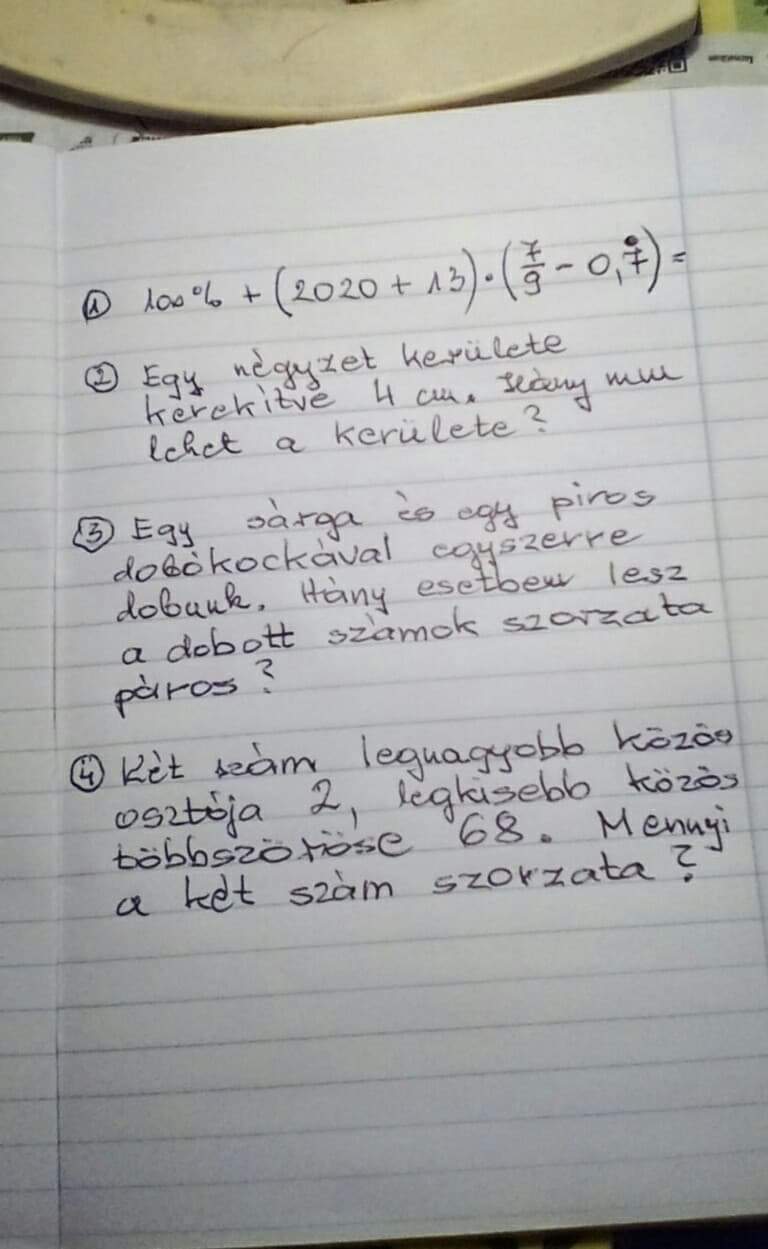 ① 100% + (2020 + 13) · (7/9 - 0,7̇) =
② Egy négyzet kerülete
kerekítve 4 cm. Hány mm
lehet a kerülete?
③ Egy sárga és egy piros
dobókockával egyszerre
dobunk. Hány esetben lesz
a dobott számok szorzata
páros?
④ Két szám legnagyobb közös
osztója 2, legkisebb közös
többszöröse 68. Mennyi
a két szám szorzata?